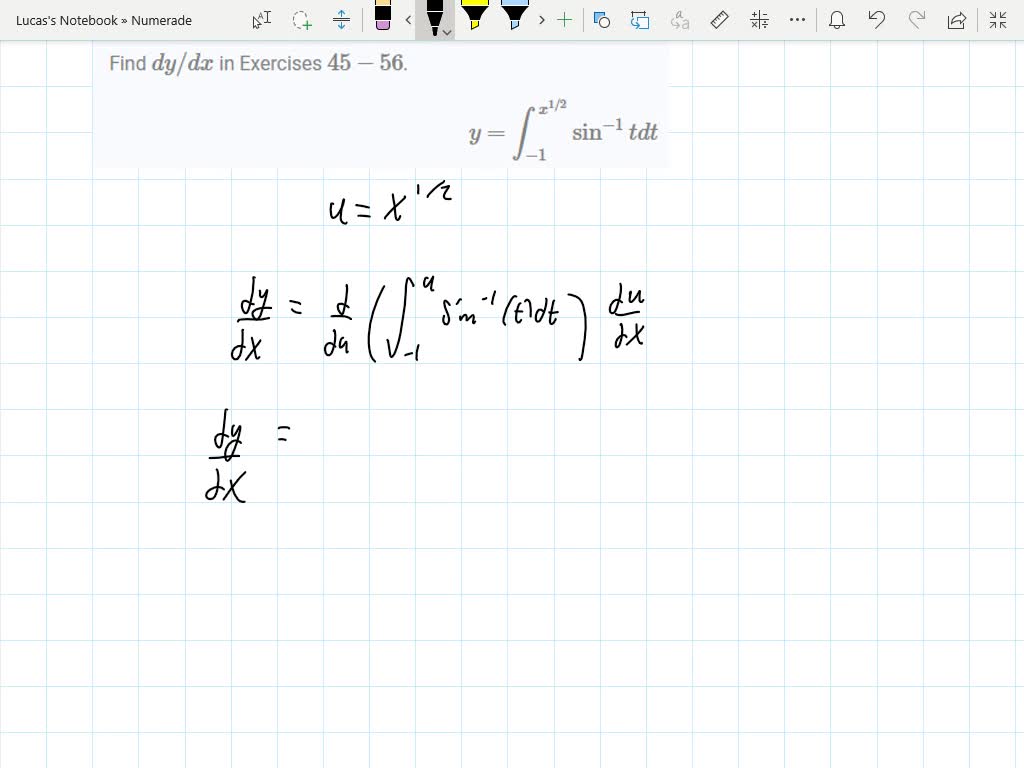 Lucas's Notebook » Numerade
Find dy/dx in Exercises 45 – 56.
y = ∫_{-1}^{x^{1/2}} sin^{-1} tdt
u = x^{1/2}
dy/dx = d/du (∫_{-1}^{u} sin^{-1}(t)dt) du/dx
dy/dx =